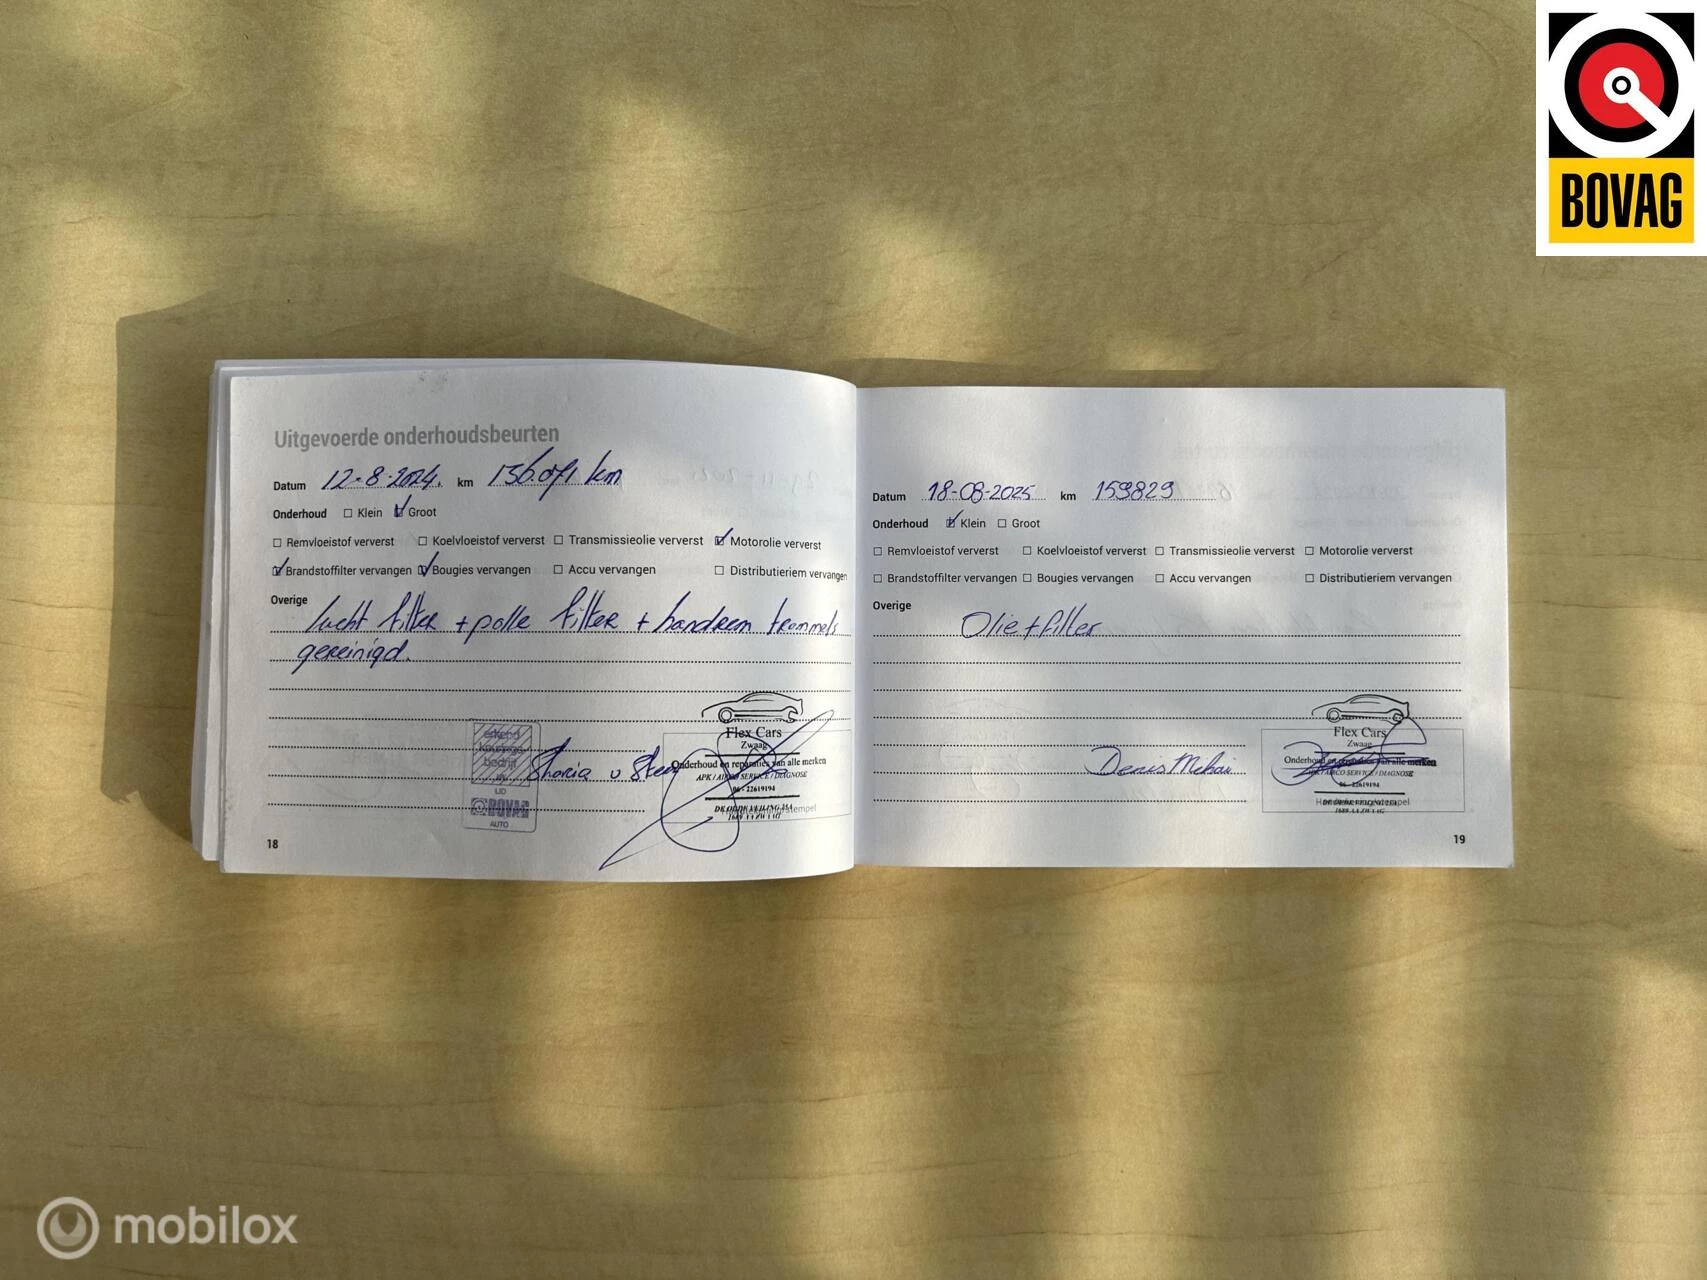 BOVAG
Uitgevoerde onderhoudsbeurten
Datum 12-8-2024. km 156.071 km
Onderhoud Klein Groot
Remvloeistof ververst Koelvloeistof ververst Transmissieolie ververst Motorolie ververst
Brandstoffilter vervangen Bougies vervangen Accu vervangen Distributieriem vervangen
Overige lucht filter + polle filter + handrem trommels
gereinigd.
erkend
bedrijf
LID
BOVAG
AUTO
Flex Cars
Zwaag
Onderhoud en reparaties van alle merken
APK / AIRCO SERVICE / DIAGNOSE
06 - 22619194
18
Datum 18-08-2025 km 159829
Onderhoud Klein Groot
Remvloeistof ververst Koelvloeistof ververst Transmissieolie ververst Motorolie ververst
Brandstoffilter vervangen Bougies vervangen Accu vervangen Distributieriem vervangen
Overige Olie + filter
Flex Cars
Zwaag
Denis Mehai
Onderhoud en reparaties van alle merken
APK / AIRCO SERVICE / DIAGNOSE
06 - 22619194
19
mobilox